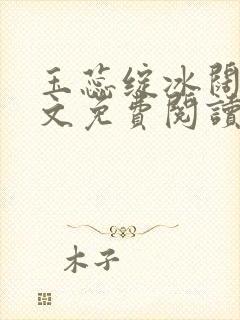 玉蕊绽冰閣
文免費閱讀
木子